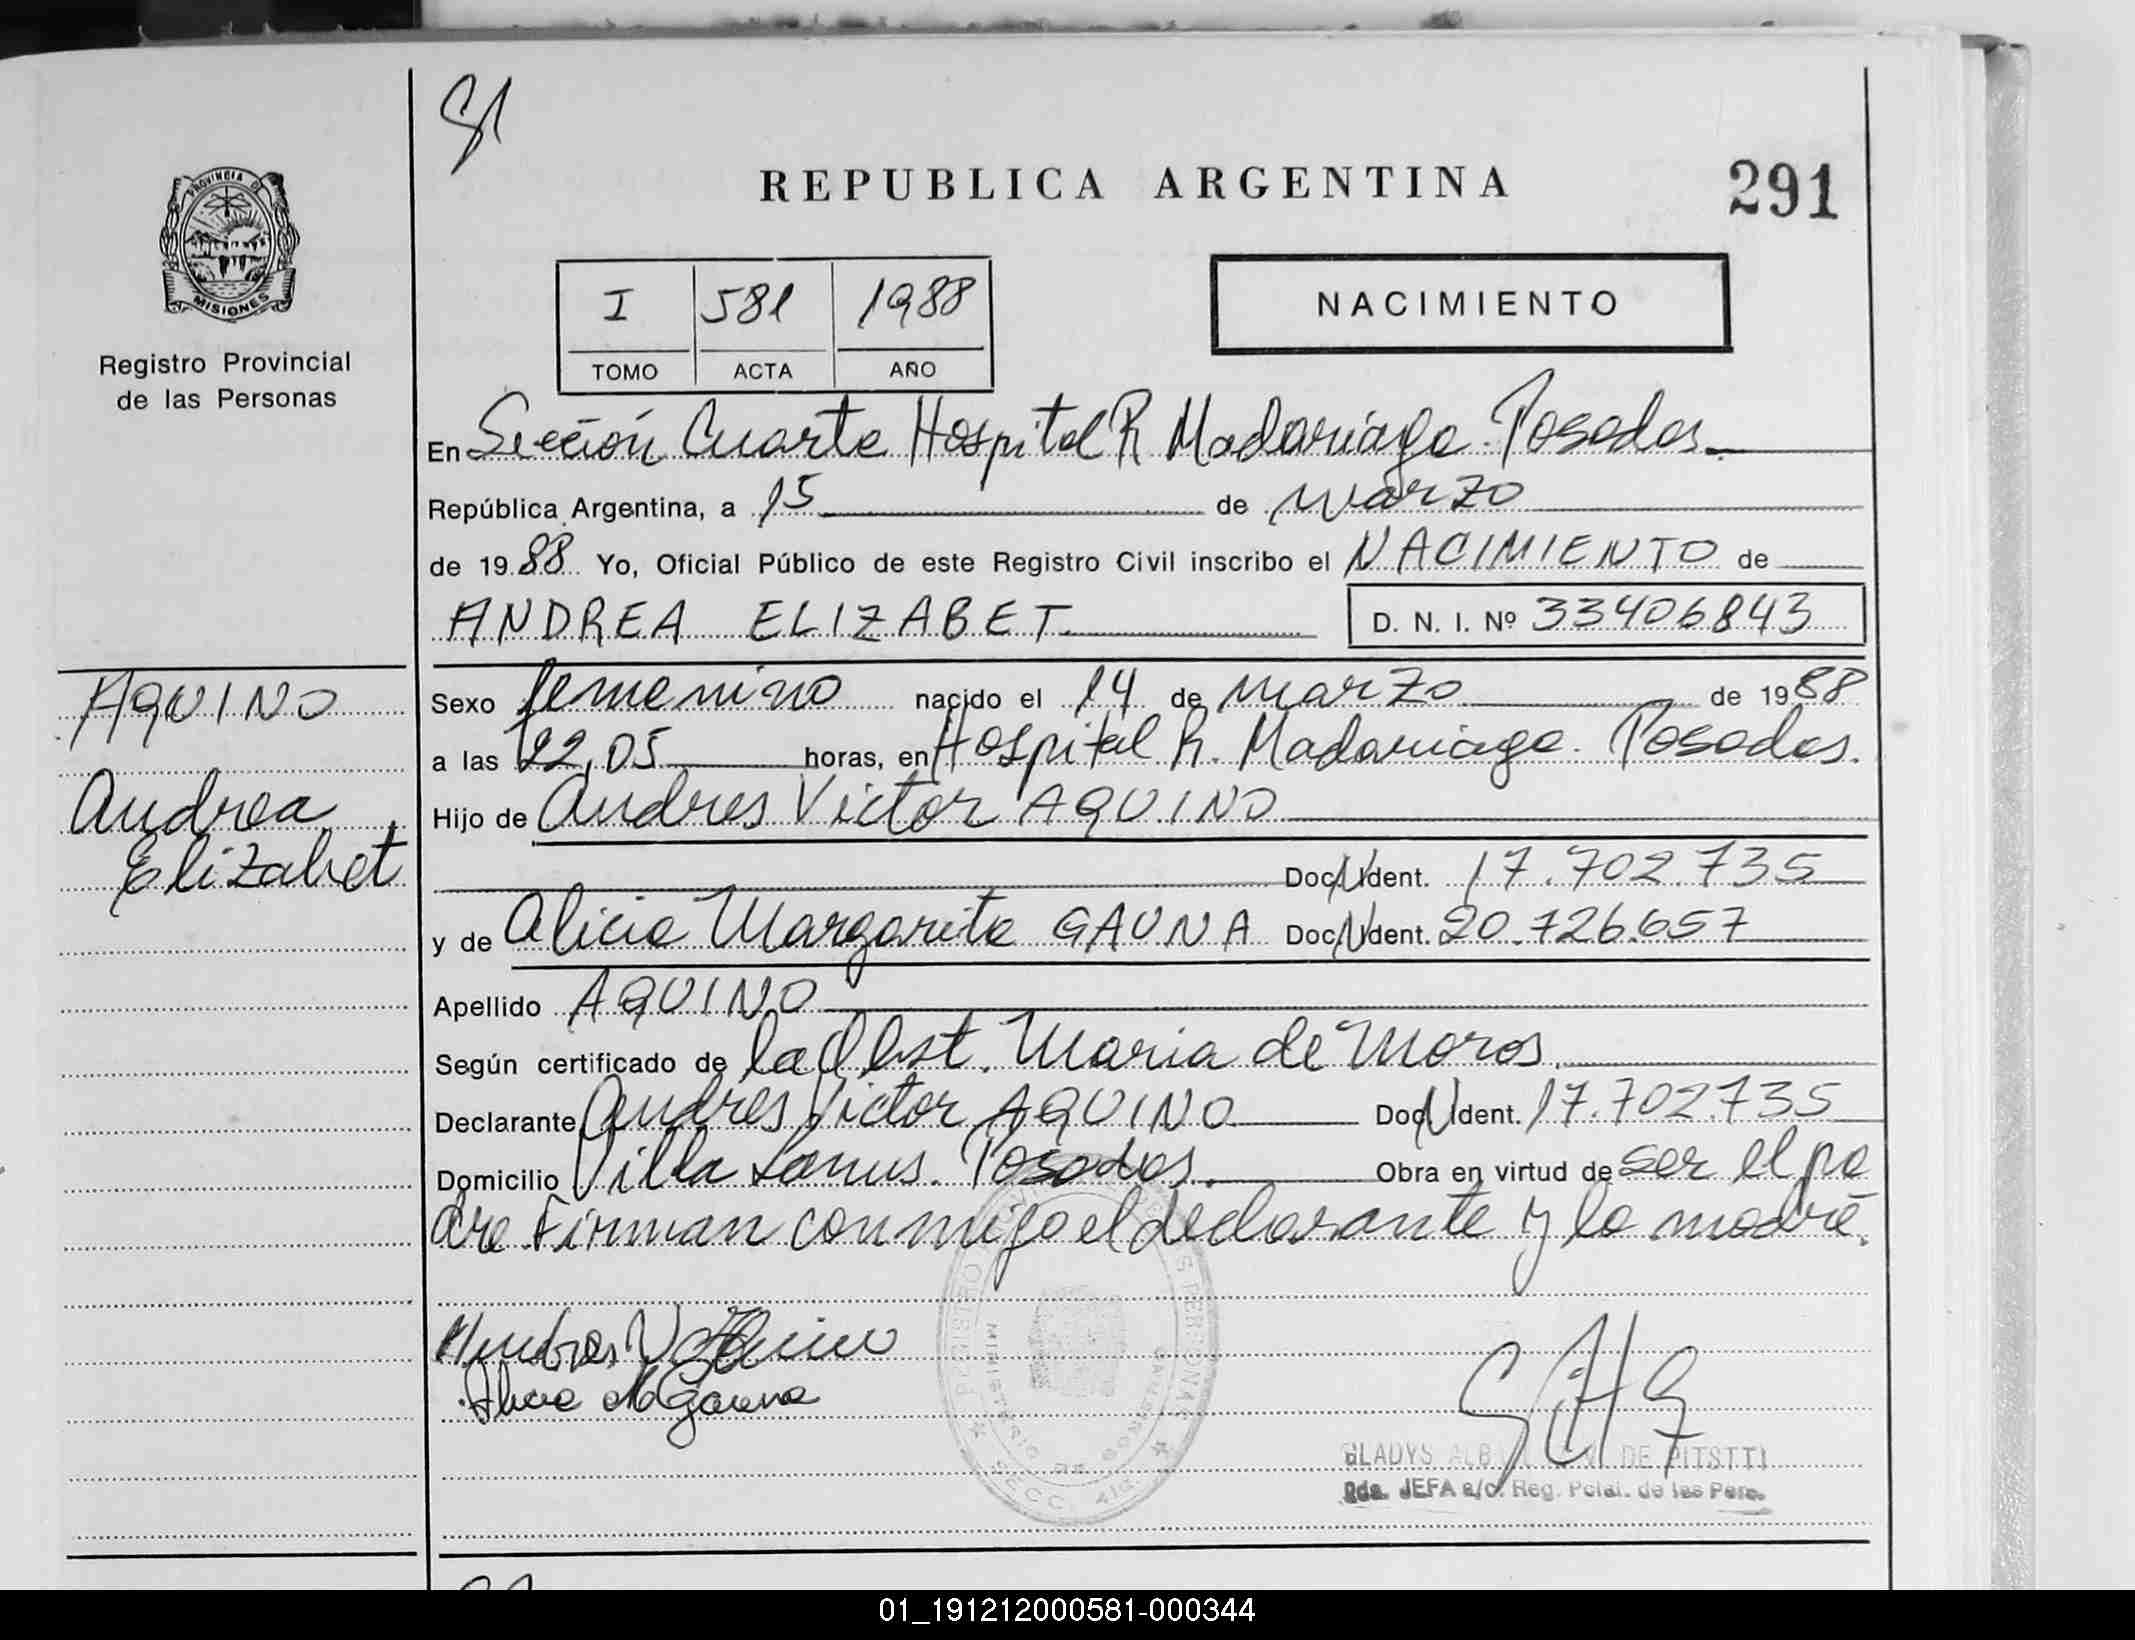 SI
REPUBLICA ARGENTINA
291
PROVINCIA DE
MISIONES
Registro Provincial
de las Personas
I 581 1988
TOMO ACTA AÑO
NACIMIENTO
En Sección Cuarta Hospital R Madariaga. Posadas.
República Argentina, a 15 de marzo
de 1988 Yo, Oficial Público de este Registro Civil inscribo el NACIMIENTO de
ANDREA ELIZABET D. N. I. Nº 33406843
AQUINO
Andrea
Elizabet
Sexo femenino nacido el 14 de marzo de 1988
a las 22,05 horas, en Hospital R. Madariaga. Posadas.
Hijo de Andres Victor AQUINO
Doc. Ident. 17.702.735
y de Alicia Margarita GAUNA Doc. Ident. 20.726.657
Apellido AQUINO
Según certificado de la Obst. Maria de Moros
Declarante Andres Victor AQUINO Doc. Ident. 17.702.735
Domicilio Villa Lanus. Posadas. Obra en virtud de ser el pa
dre. Firman conmigo el declarante y la madre.
Andres V Aquino
Alicia M Gauna
GLADYS ALBA DE PITSTTI
Pda. JEFA a/c. Reg. Pcial. de las Pers.
01_191212000581-000344